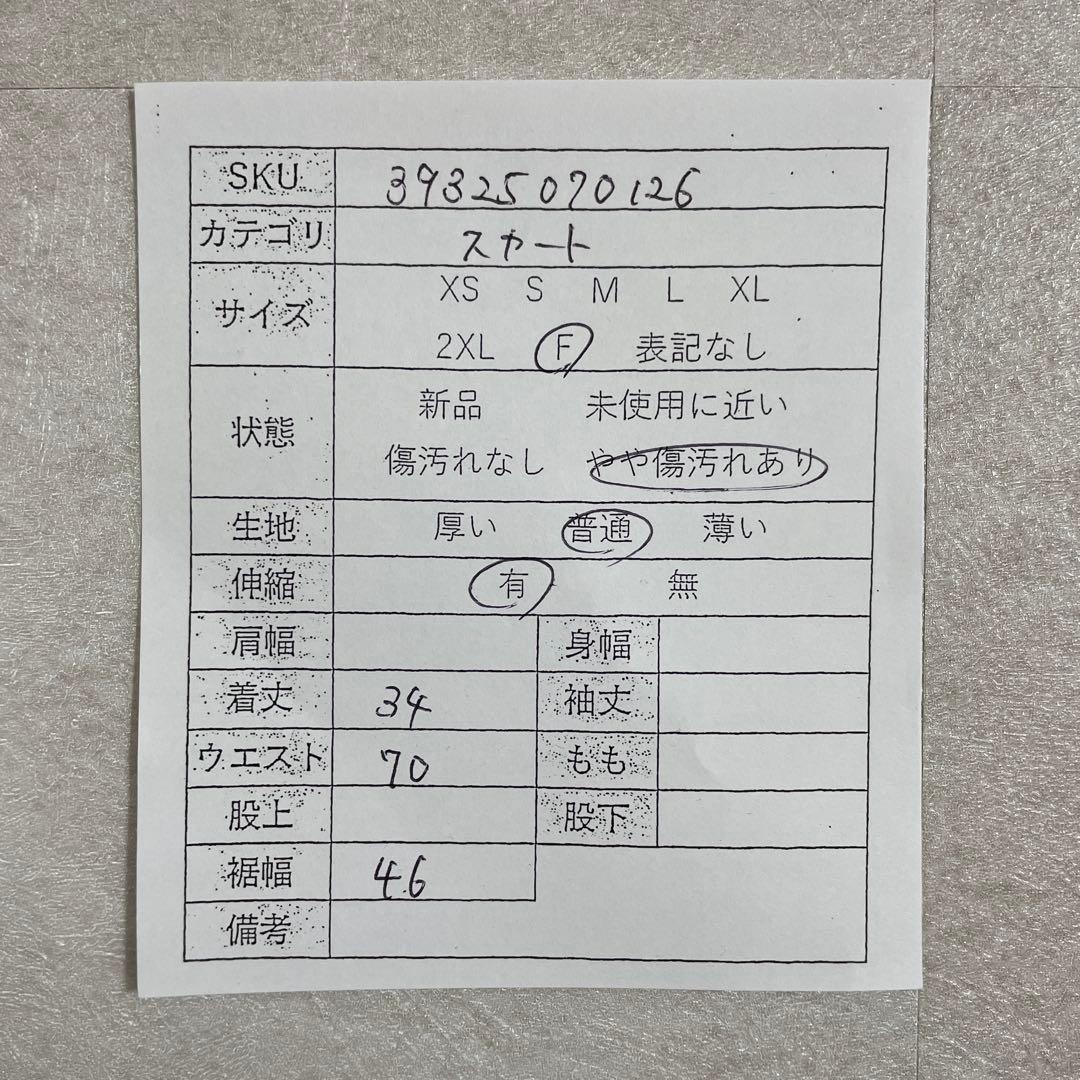 SKU 39325070126
カテゴリ スカート
サイズ XS S M L XL
2XL F 表記なし
状態 新品 未使用に近い
傷汚れなし やや傷汚れあり
生地 厚い 普通 薄い
伸縮 有 無
肩幅 身幅
着丈 34 袖丈
ウエスト 70 もも
股上 股下
裾幅 46
備考